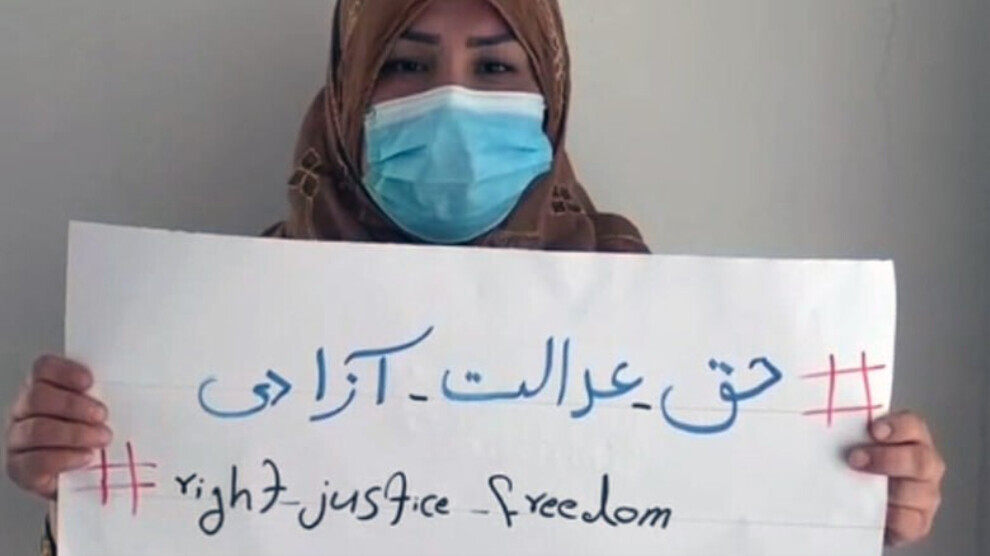 #حق-عدالت-آزادی
#right-justice-freedom